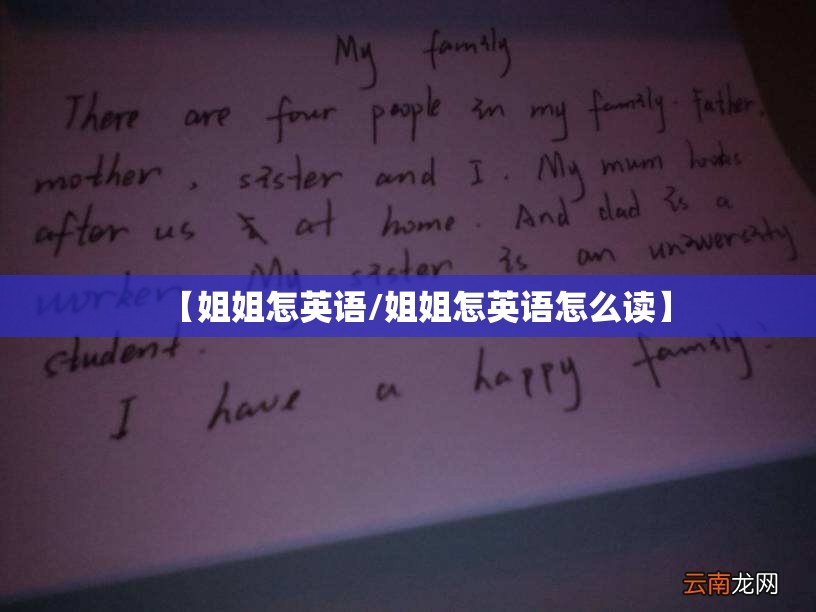 My family
There are four people in my family. Father,
mother, sister and I. My mum looks
after us at home. And dad is a
worker. My sister is an uniwersity
【姐姐怎英语/姐姐怎英语怎么读】
student.
I have a happy family!
云南龙网